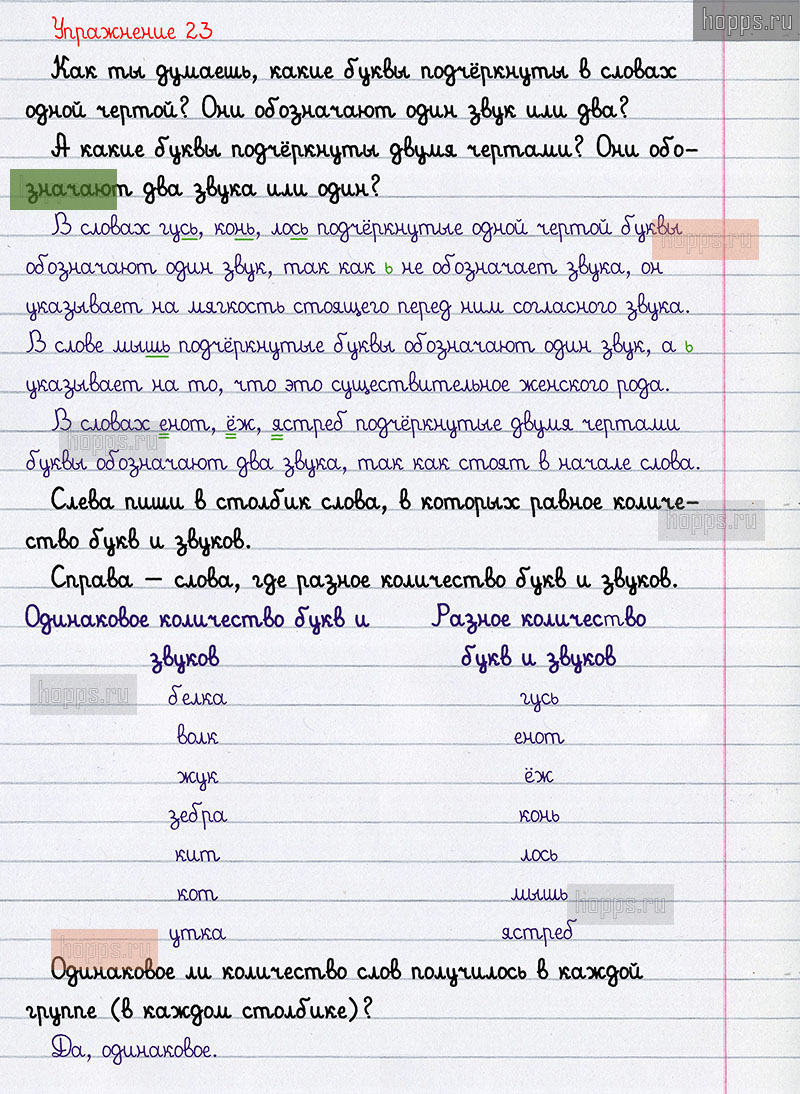 hopps.ru
Упражнение 23
Как ты думаешь, какие буквы подчёркнуты в словах
одной чертой? Они обозначают один звук или два?
А какие буквы подчёркнуты двумя чертами? Они обо-
значают два звука или один?
В словах гусь, конь, лось подчёркнутые одной чертой буквы
hopps.ru
обозначают один звук, так как ь не обозначает звука, он
указывает на мягкость стоящего перед ним согласного звука.
В слове мышь подчёркнутые буквы обозначают один звук, а ь
указывает на то, что это существительное женского рода.
В словах енот, ёж, ястреб подчёркнутые двумя чертами
hopps.ru
буквы обозначают два звука, так как стоят в начале слова.
Слева пиши в столбик слова, в которых равное количе-
hopps.ru
ство букв и звуков.
Справа — слова, где разное количество букв и звуков.
Одинаковое количество букв и Разное количество
звуков букв и звуков
hopps.ru
белка гусь
волк енот
жук ёж
зебра конь
кит лось
кот мышь
hopps.ru
утка ястреб
hopps.ru
Одинаковое ли количество слов получилось в каждой
группе (в каждом столбике)?
Да, одинаковое.